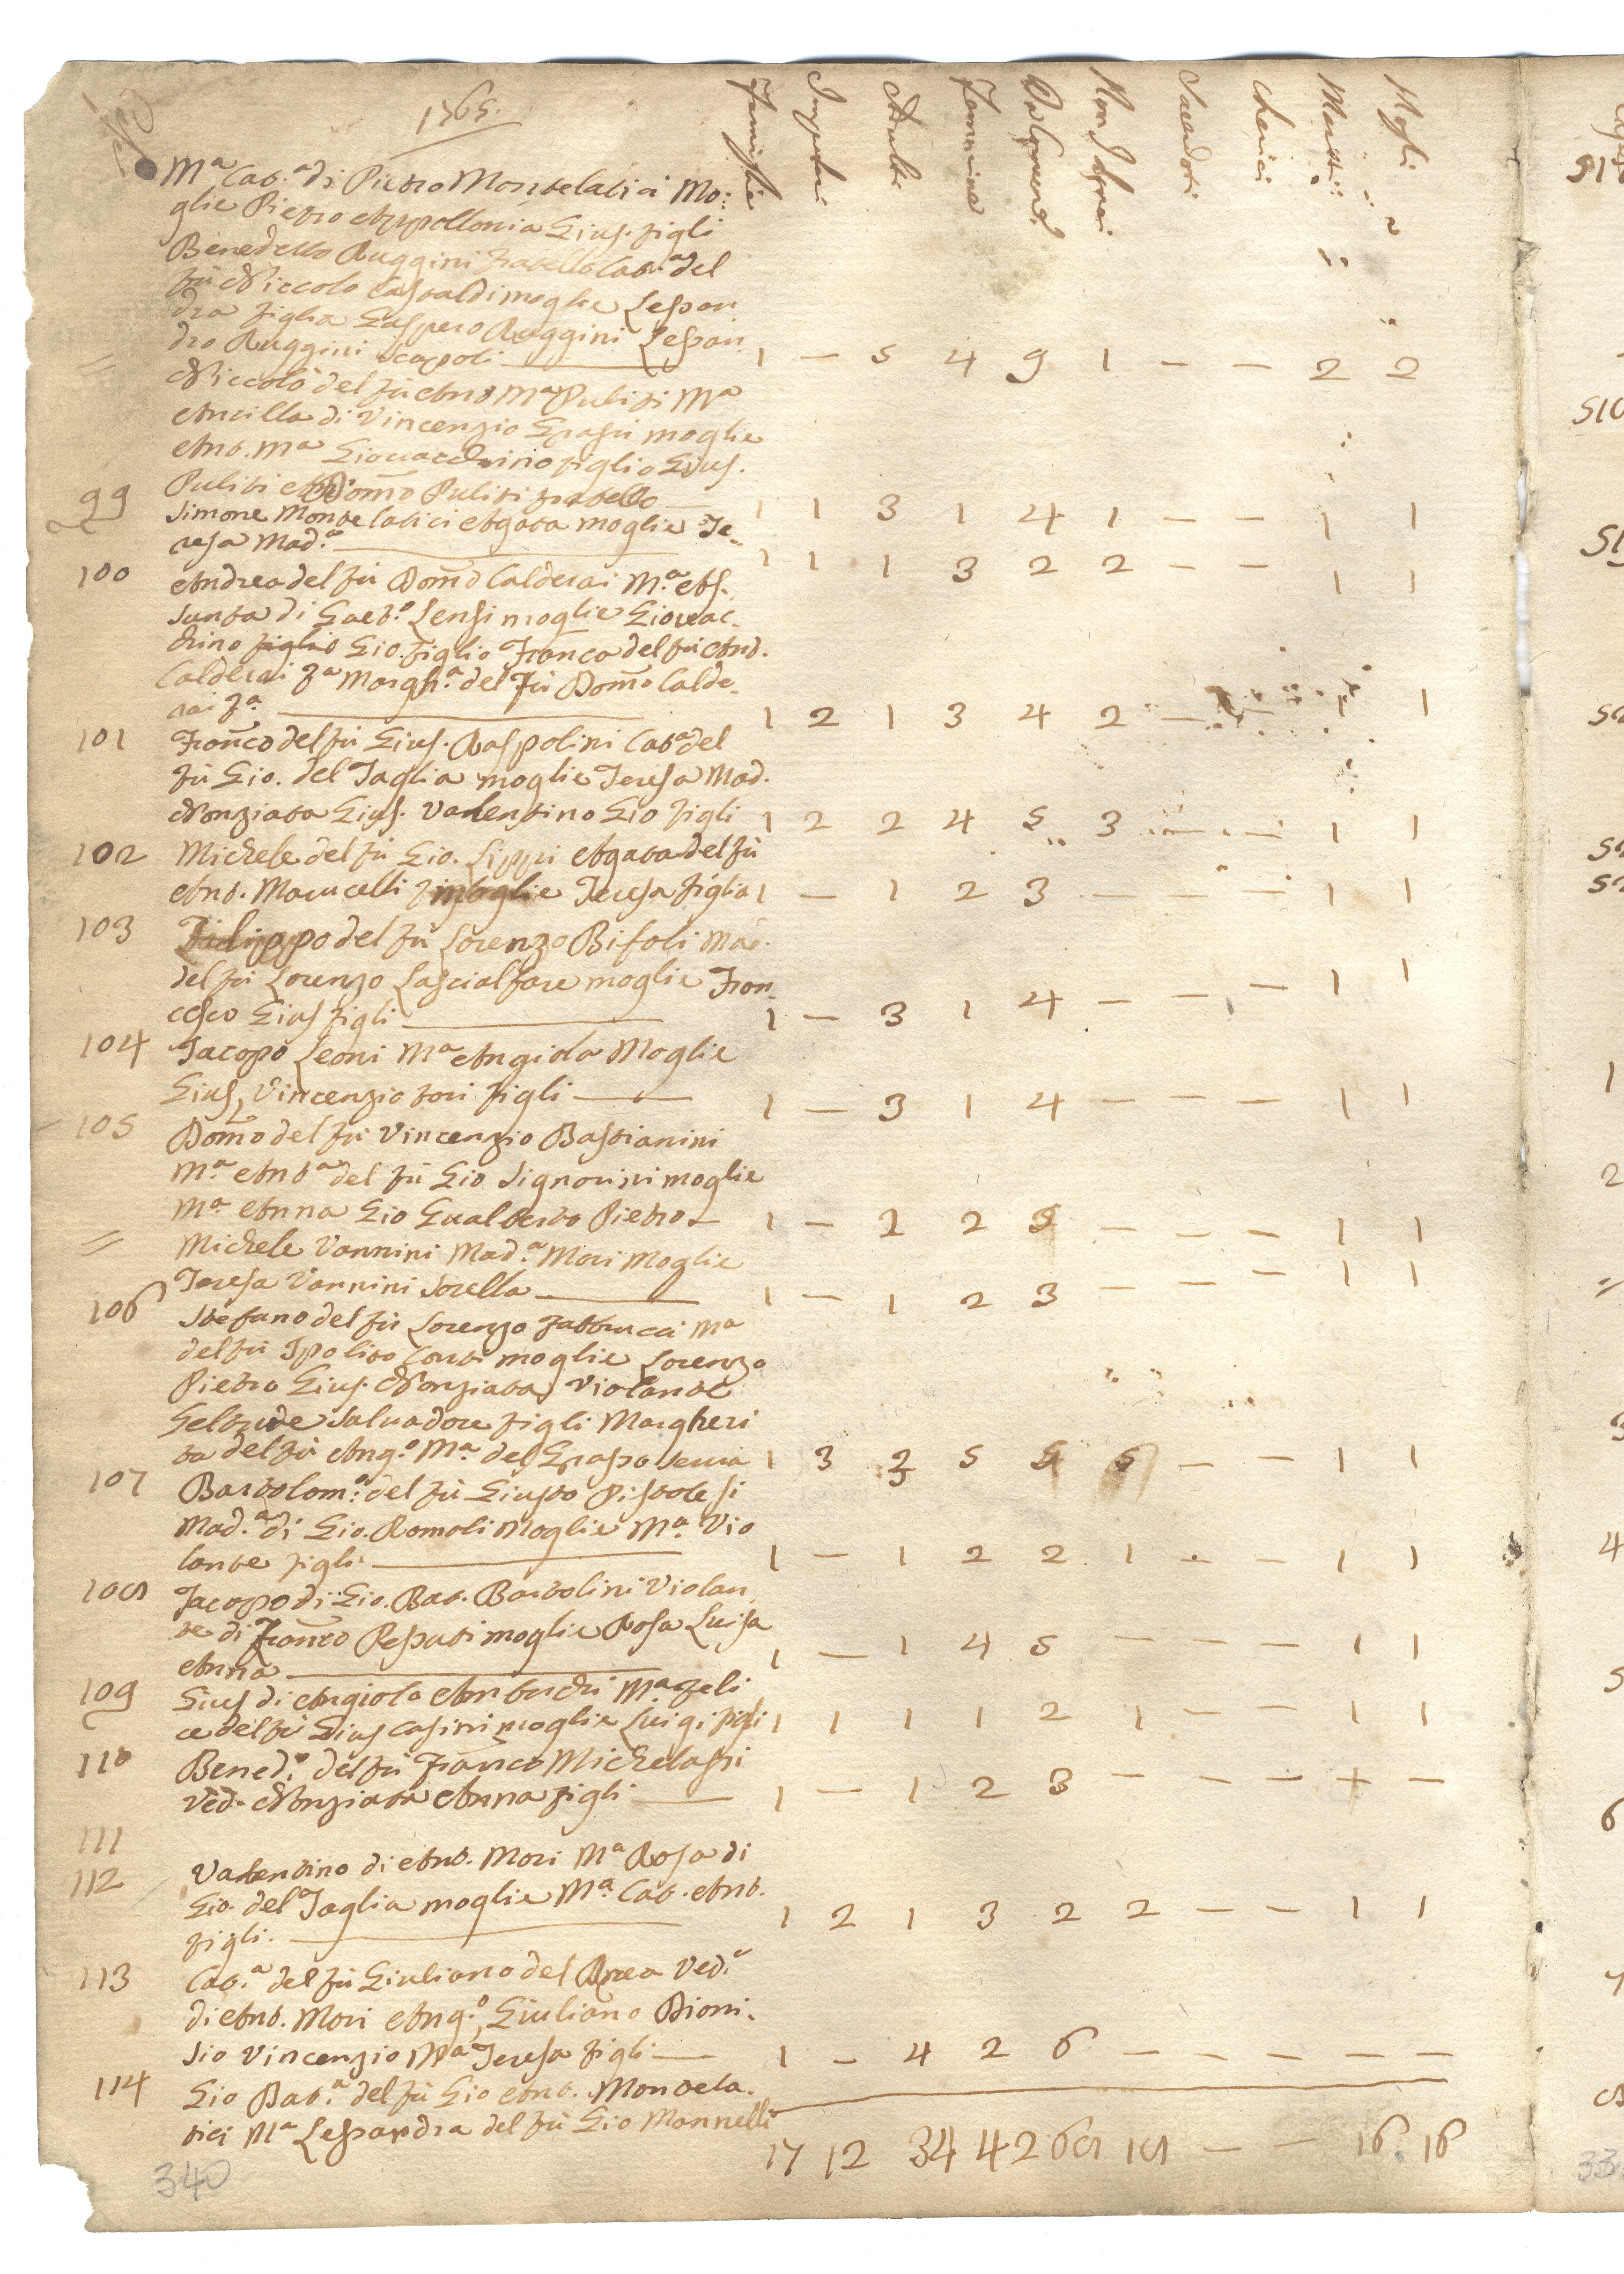 1765.
Famiglie Impuberi Adulti Femmine Da Comuni. Non da Comuni Sacerdoti Cherici Mariti Mogli
Ma Cat.a di Pietro Montelatici Mo:
glie Pietro Appollonia Gius. figli
Benedetto Ruggini fratello Cat.a del
fù Niccolo Castaldi moglie Lessan
dra figlia Gaspero Ruggini Lessan
= dro Ruggini scapoli 1 — 5 4 9 1 — — 2 2
Niccolò del fù Anto Ma Puliti Ma
Ancilla di Vincenzio Grassi moglie
Ant. Ma Giovacchino figlio Gius.
99 Puliti e Dom̃o Puliti fratello 1 1 3 1 4 1 — — 1 1
Simone Montelatici Agata moglie Te-
resa Mad.a 1 1 1 3 2 2 — — 1 1
100 Andrea del fù Dom̃o Calderai M.a As-
sunta di Gaet.o Lensi moglie Giovac-
chino figlio Gio. figlio Franca del fù Ant.
Calderai fa Margh.a del fù Dom̃o Calde-
rai fa. 1 2 1 3 4 2 — — 1 1
101 Franco del fù Gius. Raspolini Cat.a del
fù Gio. del Taglia moglie Teresa Mad.
Nonziata Gius. Valentino Gio figli 1 2 2 4 5 3 — — 1 1
102 Michele del fù Gio. Lippi Agata del fù
Ant. Marucelli moglie Teresa figlia 1 — 1 2 3 — — — 1 1
103 Filippo del fù Lorenzo Bifoli Mad.
del fù Lorenzo Lascialfare moglie Fran-
cesco Gius figli 1 — 3 1 4 — — — 1 1
104 Jacopo Leoni Ma Angiola Moglie
Gius, Vincenzio figli 1 — 3 1 4 — — — 1 1
105 Dom̃o del fù Vincenzio Bastianini
M.a Ant.a del fù Gio Signorini moglie
M.a Anna Gio Gualberto Pietro 1 — 2 2 5 — — — 1 1
= Michele Vannini Mad.a Mori Moglie
Teresa Vannini Sorella 1 — 1 2 3 — — — 1 1
106 Stefano del fù Lorenzo Fabbrucci Ma
del fù Ipolito Conti moglie Lorenzo
Pietro Gius. Nonziata Violante
Geltrude Salvadore figli Margheri
ta del fù Ang.o M.a del Grasso serva 1 3 3 5 5 6 — — 1 1
107 Bartolom.o del fù Giusto Pistolesi
Mad.a di Gio. Romoli Moglie M.a Vio
lante figli 1 — 1 2 2 1 — — 1 1
108 Jacopo di Gio. Bat. Bartolini Violan
te di Franco Pesuti moglie Rosa Luisa
Anna 1 — 1 4 5 — — — 1 1
109 Gius di Angiolo Ambuchi M.a Feli
ce del fù Gius Casini moglie Luigi figli 1 1 1 1 2 1 — — 1 1
110 Bened.o del fù Franco Michelassi
Ved. Nonziata Anna figli 1 — 1 2 3 — — — + —
111
112 Valentino di Ant. Mori Ma Rosa di
Gio. del Taglia moglie M.a Cat. Ant.
figli. 1 2 1 3 2 2 — — 1 1
113 Cat.a del fù Giuliano del Rnea Ved.a
di Ant. Mori Ang.o, Giuliano Dioni-
sio Vincenzio Ma Teresa figli 1 — 4 2 6 — — — — —
114 Gio Bat.a del fù Gio Ant. Montela-
tici Ma Lessandra del fù Gio Mannelli
17 12 34 42 68 18 — — 16. 16
340